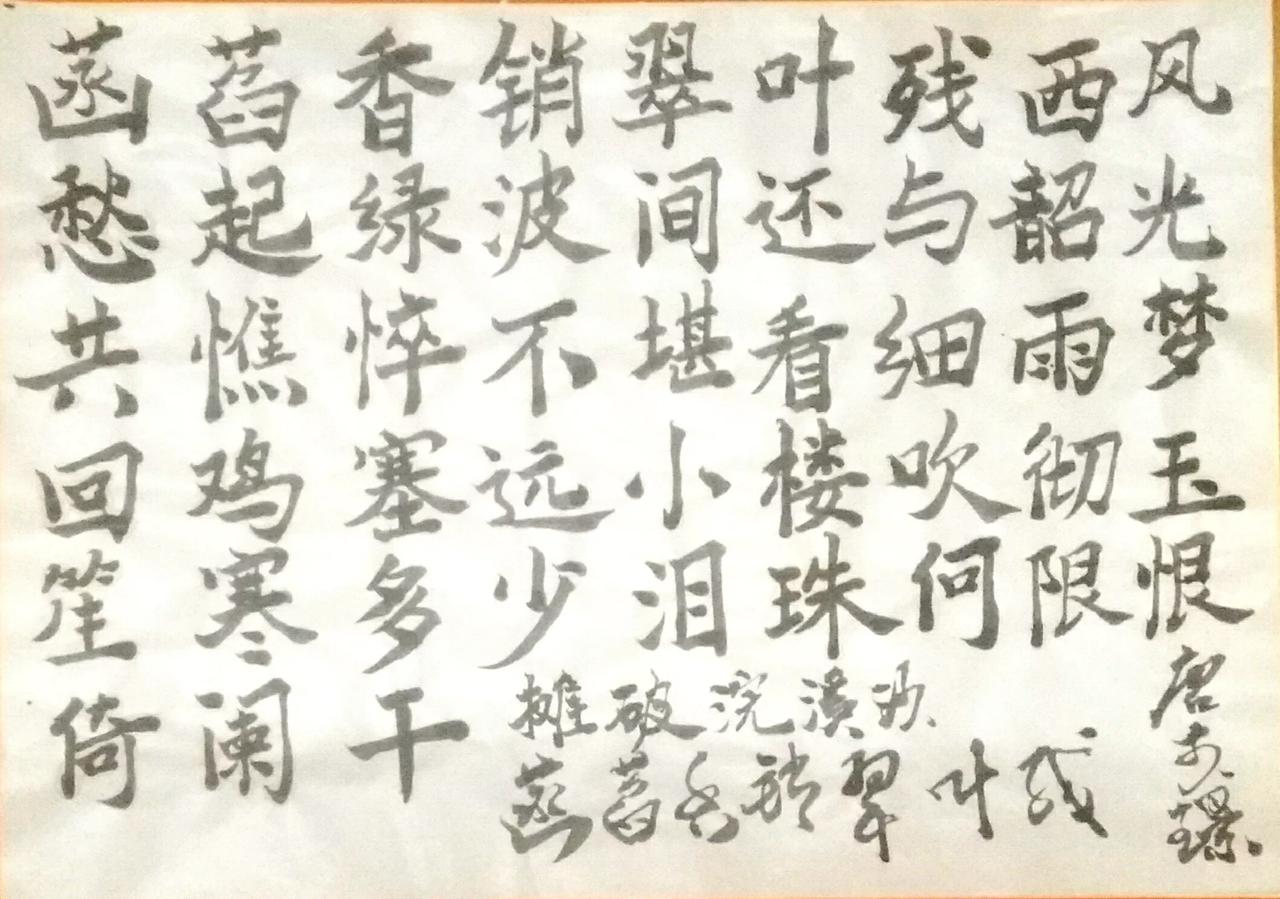 菡萏香销翠叶残西风
愁起绿波间还与韶光
共憔悴不堪看细雨梦
回鸡塞远小楼吹彻玉
笙寒多少泪珠何限恨
倚阑干
摊破浣溪沙
菡萏香销翠叶残
唐李璟